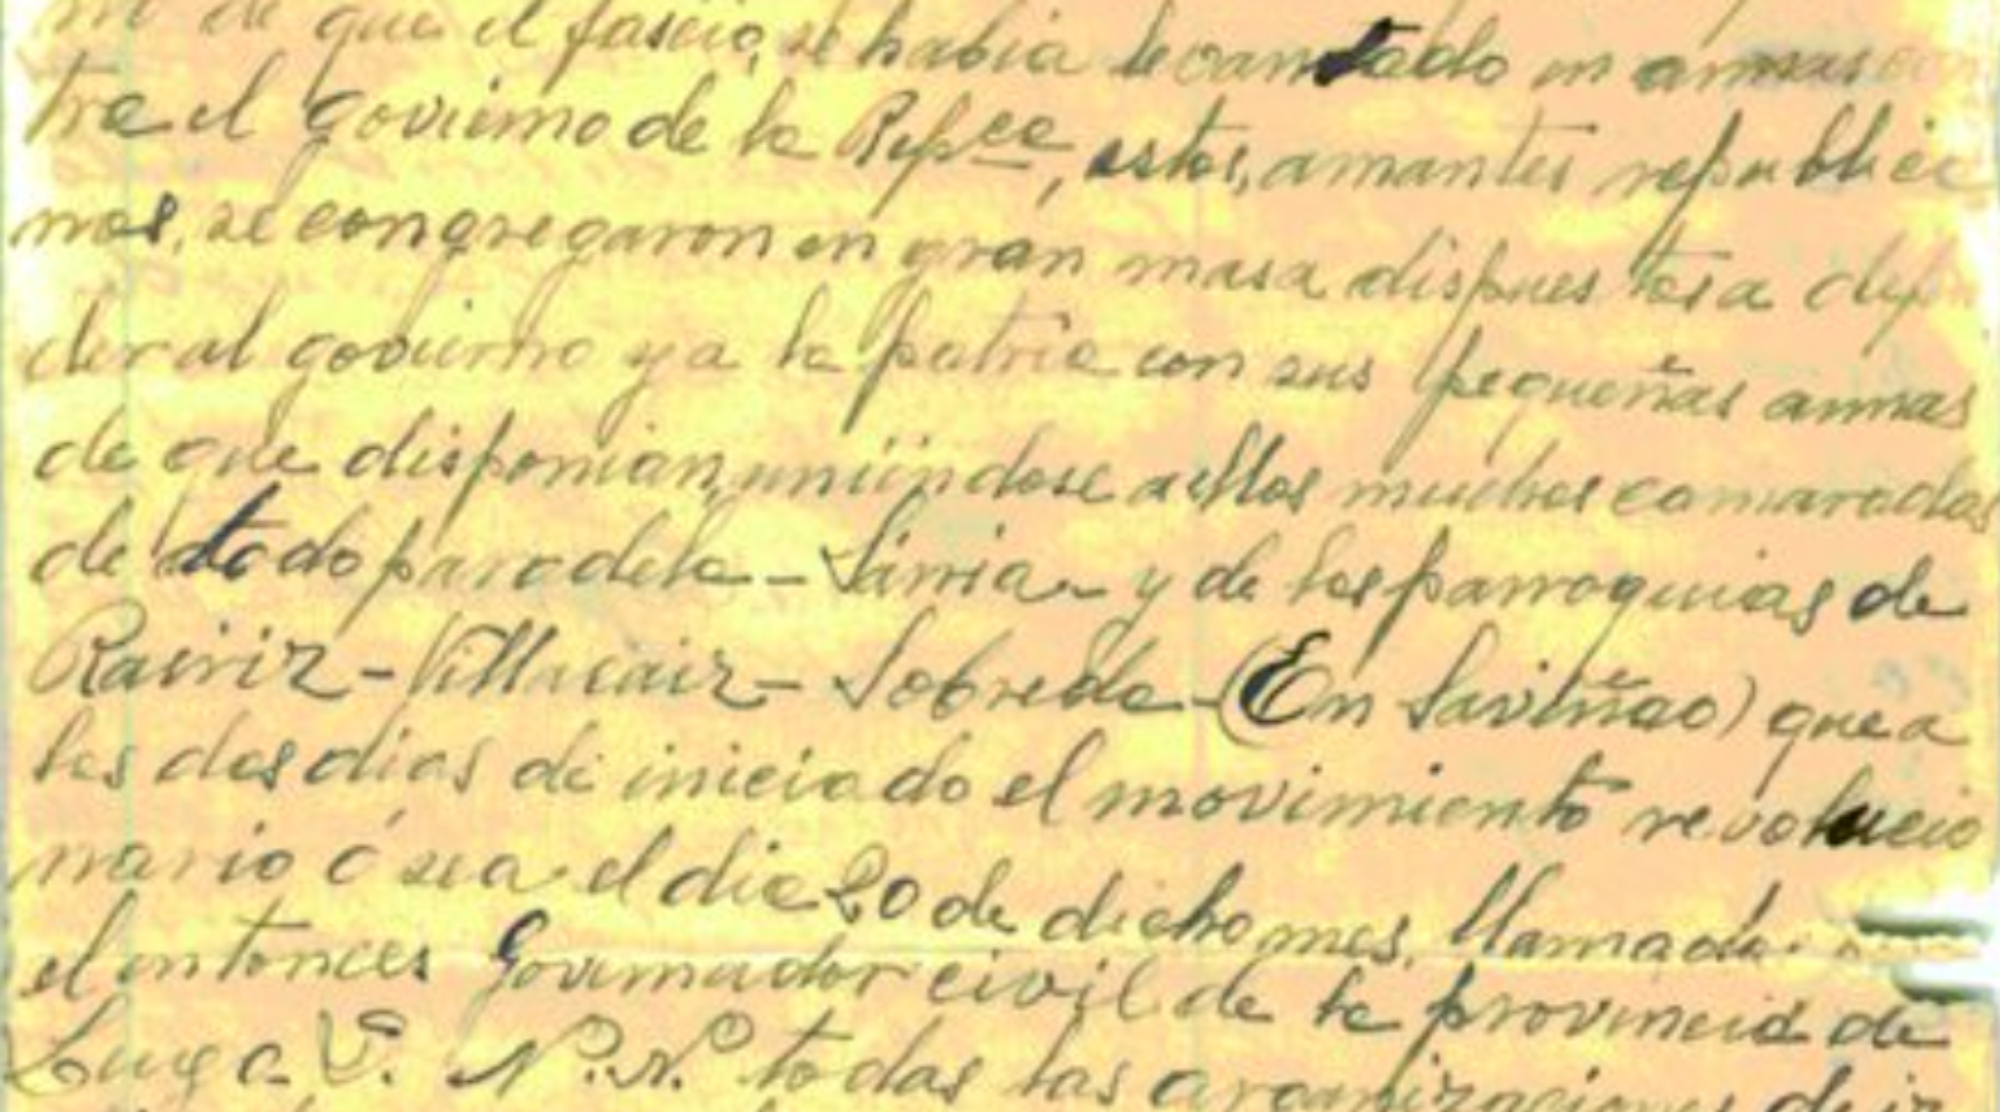 de que el fascio, se habia levantado en armas con
tra el govierno de la Repca, estos, amantes republica
nos, se congregaron en gran masa dispuestos a defen
der al govierno y a la patria con sus pequeñas armas
de que disponian, uniendose a ellos muchos camaradas
de todo paradela - Sarria - y de las parroquias de
Rairiz - Villacaiz - Sobreda - (En Saviñao) que a
los dos dias de iniciado el movimiento revolucio
nario ó sea el dia 20 de dicho mes, llamada
el entonces Governador civil de la provincia de
Lugo D. N. N. todas las organizaciones de iz